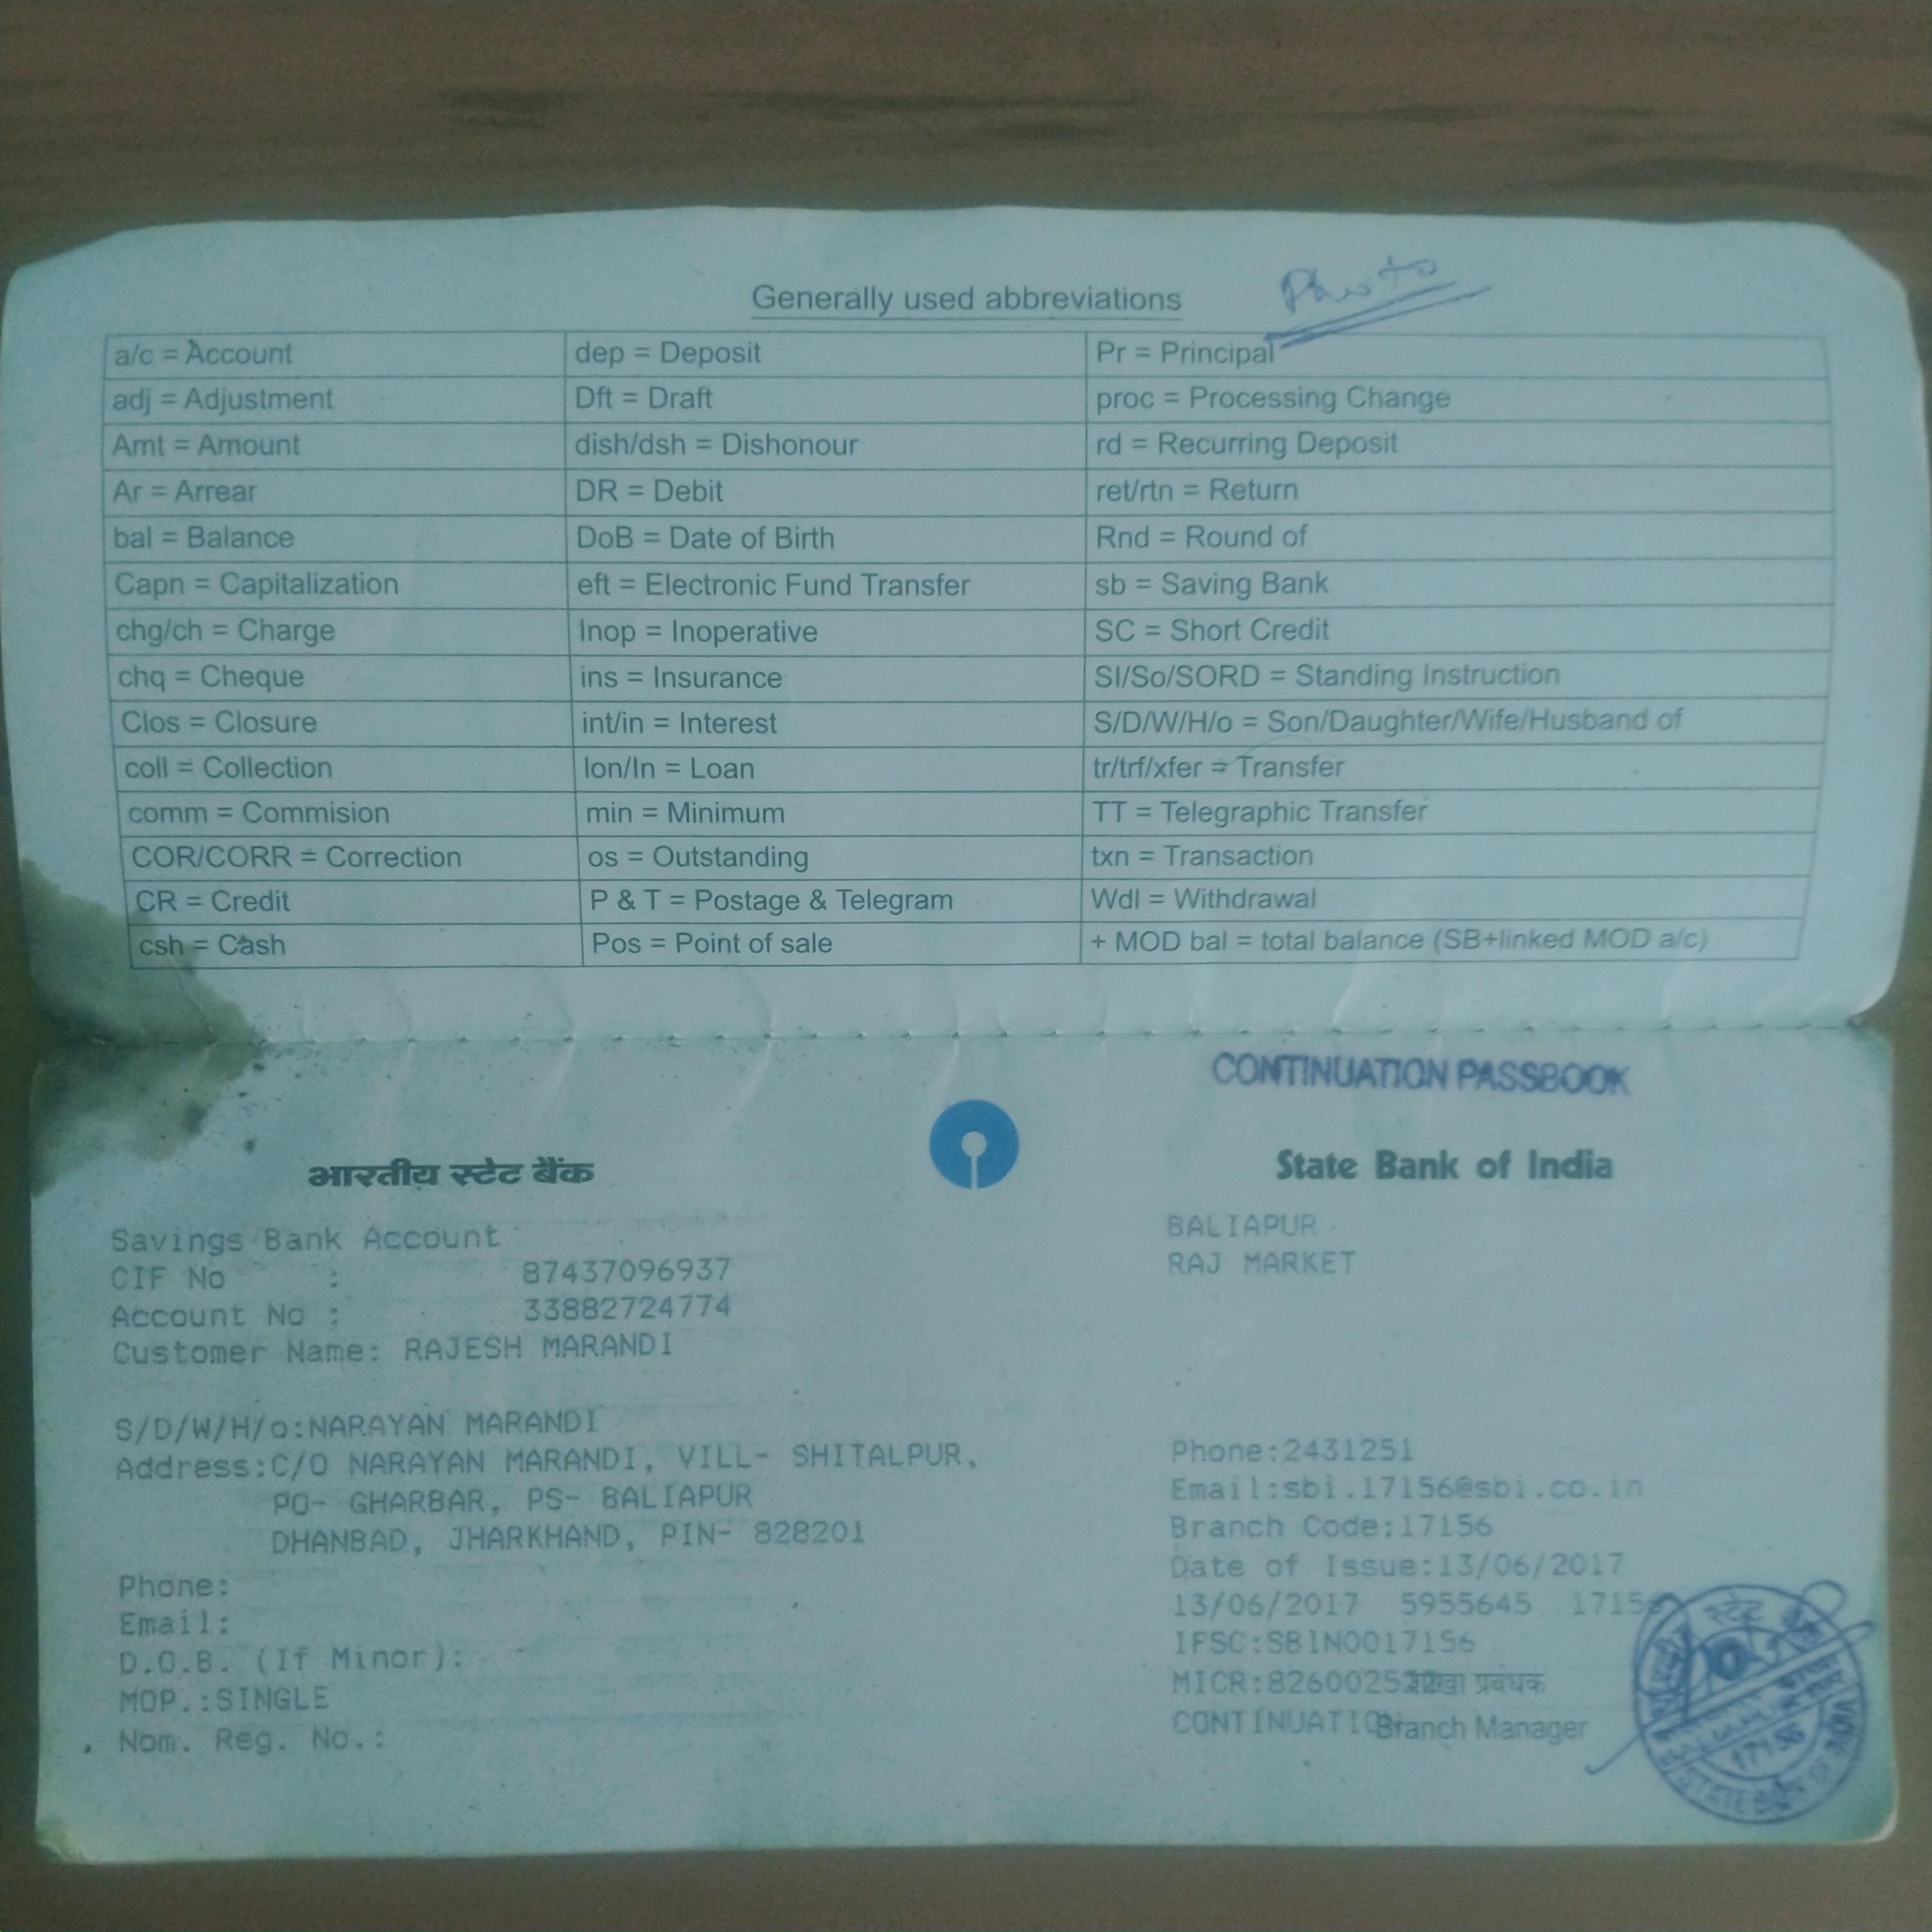 Generally used abbreviations
Photo
a/c = Account dep = Deposit Pr = Principal
adj = Adjustment Dft = Draft proc = Processing Change
Amt = Amount dish/dsh = Dishonour rd = Recurring Deposit
Ar = Arrear DR = Debit ret/rtn = Return
bal = Balance DoB = Date of Birth Rnd = Round of
Capn = Capitalization eft = Electronic Fund Transfer sb = Saving Bank
chg/ch = Charge Inop = Inoperative SC = Short Credit
chq = Cheque ins = Insurance SI/So/SORD = Standing Instruction
Clos = Closure int/in = Interest S/D/W/H/o = Son/Daughter/Wife/Husband of
coll = Collection lon/ln = Loan tr/trf/xfer = Transfer
comm = Commision min = Minimum TT = Telegraphic Transfer
COR/CORR = Correction os = Outstanding txn = Transaction
CR = Credit P & T = Postage & Telegram Wdl = Withdrawal
csh = Cash Pos = Point of sale + MOD bal = total balance (SB+linked MOD a/c)
CONTINUATION PASSBOOK
भारतीय स्टेट बैंक
State Bank of India
Savings Bank Account
CIF No : 87437096937
Account No : 33882724774
Customer Name: RAJESH MARANDI
S/D/W/H/o:NARAYAN MARANDI
Address:C/O NARAYAN MARANDI, VILL- SHITALPUR,
PO- GHARBAR, PS- BALIAPUR
DHANBAD, JHARKHAND, PIN- 828201
Phone:
Email:
D.O.B. (If Minor):
MOP.:SINGLE
Nom. Reg. No.:
BALIAPUR
RAJ MARKET
Phone:2431251
Email:sbi.17156@sbi.co.in
Branch Code:17156
Date of Issue:13/06/2017
13/06/2017 5955645 17156
IFSC:SBIN0017156
MICR: शाखा प्रबंधक
Branch Manager
स्टेट
17156
STATE BANK OF INDIA